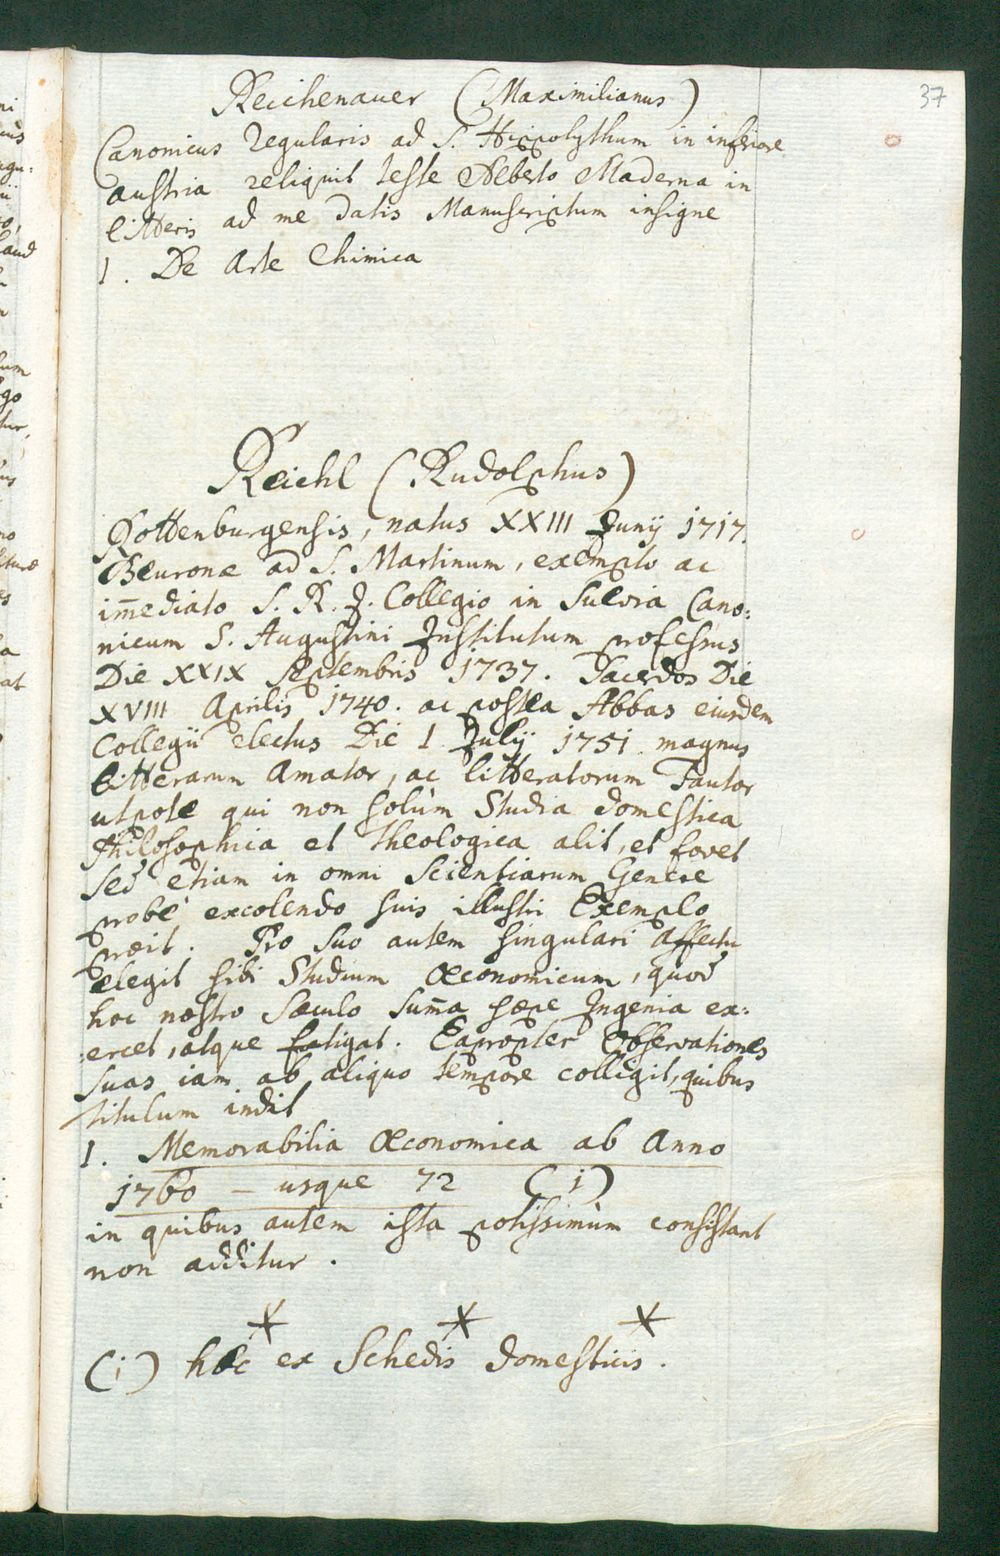 37
Reichenauer (Maximilianus)
Canonicus Regularis ad S. Hippolythum in inferiore
austria reliquit teste Alberto Maderna in
litteris ad me datis Manuscriptum insigne
1. De Arte Chimica
Reichl (Rudolphus)
Rottenburgensis, natus XXIII Junij 1717.
Beuronæ ad S. Martinum, exempto ac
im̄ediato S. R. J. Collegio in Suevia Cano:
nicum S. Augustini Institutum professus
Die XXIX Septembris 1737. Sacerdos Die
XVIII Aprilis 1740. ac postea Abbas eiusdem
Collegii electus Die 1 Julij 1751. magnus
litterarum Amator, ac litteratorum Fautor
utpote qui non solùm Studia domestica
Philosophica et theologica alit, et fovet
sed etiam in omni Scientiarum Genere
probè excolendo suis illustri Exemplo
præit. Pro suo autem singulari affectu
elegit sibi Studium Œconomicum, quod
hoc nostro Sæculo sum̄a sæpe Ingenia ex:
:ercet, atque fatigat. Eapropter Observationes
suas iam ab aliquo tempore colligit, quibus
titulum indit
1. Memorabilia Œconomica ab Anno
1760 – usque 72 (i)
in quibus autem ista potissimùm consistant
non additur.
* * *
(i) hæc ex Schedis domesticis.